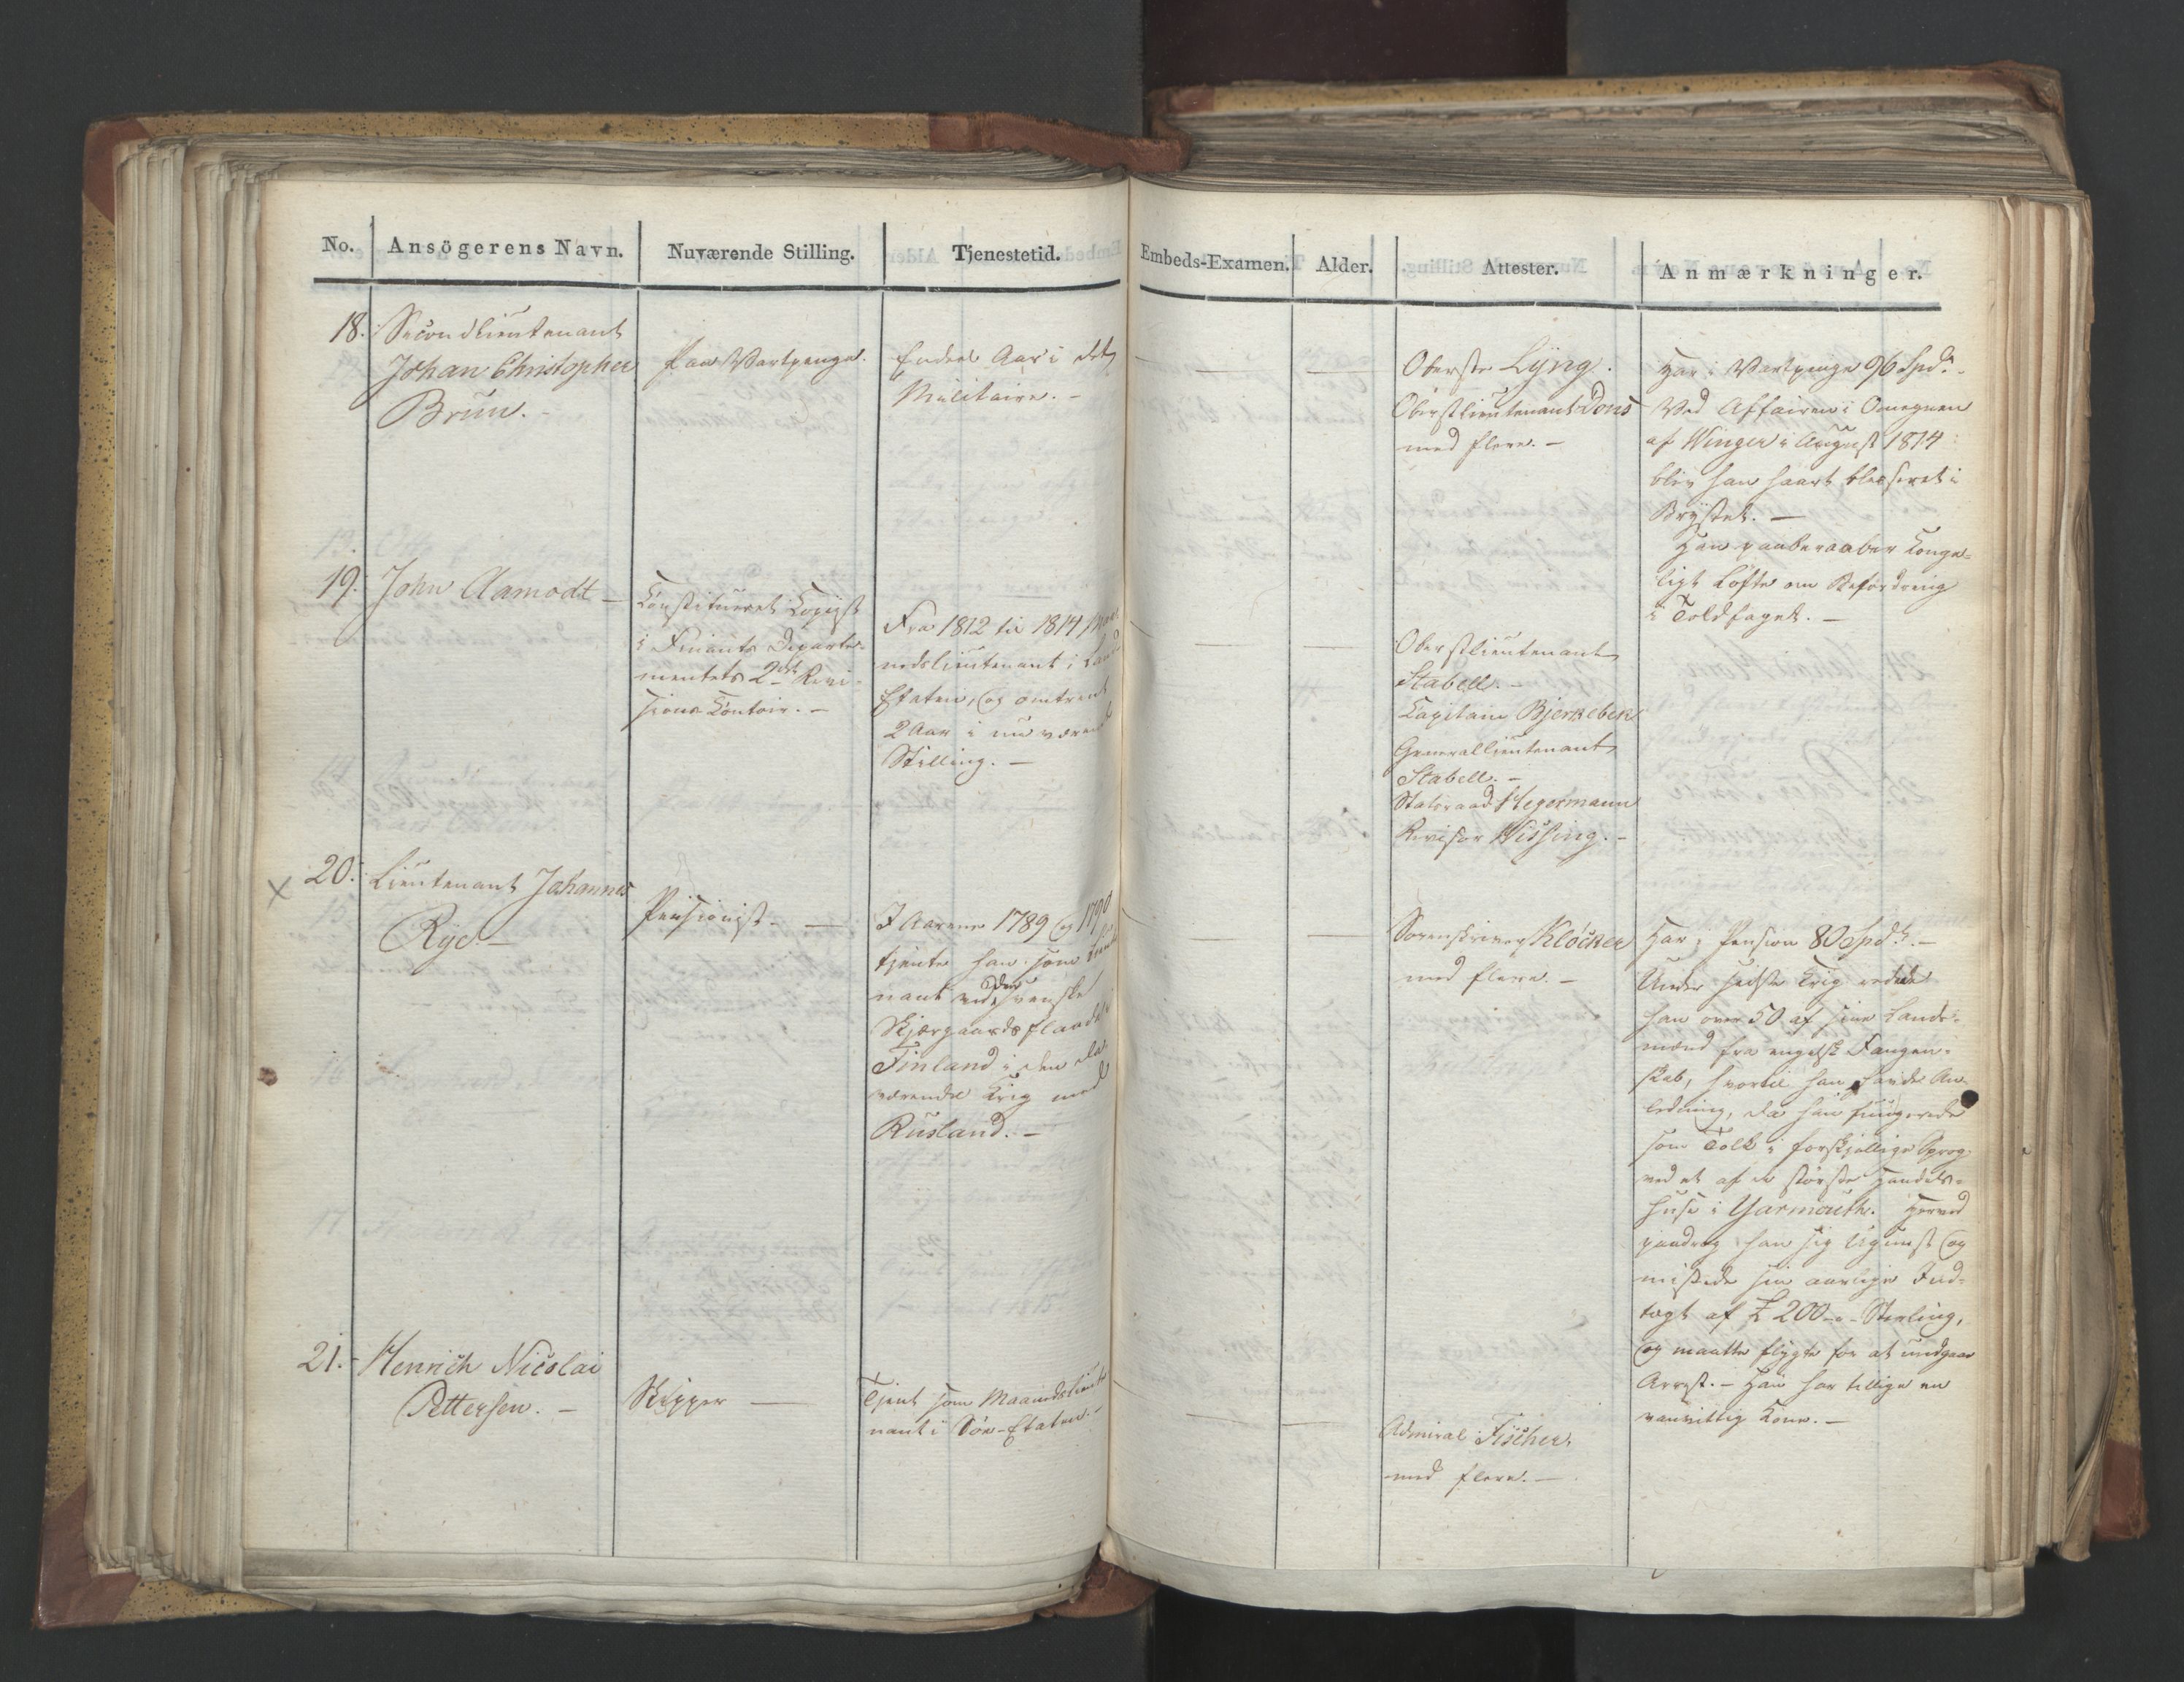 No. Ansögerens Navn. Nuværende Stilling. Tjenestetid. Embeds-Examen. Alder. Attester. Anmærkninger.
18. Secondlieutenant
Johan Christopher
Brun. -
paa Vartpenge.
Endeel Aar i det
Militaire. -
Oberste Lÿng.
Oberstlieutenant Dons
med flere. -
Har i Vartpenge 96 Spd.
Ved Affairen i Omegnen
af Winger i August 1814
blev han haart blesseret i
Brÿstet. -
Han paaberaaber Konge-
ligt Løfte om Befordring
i Toldfaget. -
19. John Aamodt -
Constitueret Copiist
i Finants Departe-
mentets 2det Revi-
sions Contoir. -
Fra 1812 til 1814 Maa-
nedslieutenant i Land
Etaten, og omtrent
2 Aar i nu værende
Stilling. -
Oberstlieutenant
Stabell. -
Capitain Bjerkebek
Generallieutenant
Stabell. -
Statsraad Hegermann
Revisor Wissing. -
20. Lieutenant Johannes
Rÿe. -
Pensionist. -
I Aarene 1789 og 1790
tjente han som Lieute
nant ved den svenske
Skjærgaardsflaade i
Finland i den da
værende Krig med
Rusland. -
Sorenskriver Klöcker
med flere. -
Har i Pension 80 Spd. -
Under sidste Krig redede
han over 50 af sine Lands-
mænd fra engelsk Fangen-
skab, hvortil han havde An-
ledning, da han fungerede
som Tolk i forskjellige Sprog
ved et af de største Handels-
huse i Yarmouth. Herved
paadrog han sig Ugunst og
mistede sin aarlige Ind-
tægt af £ 200 - Sterling,
og maatte flÿgte for at undgaae
Arrest. - Han har tillige en
vanvittig Kone. -
21. Henrich Nicolai
Pettersen. -
Skipper -
Tjent som Maanedslieute
nant i Søe-Etaten. -
Admiral Fischer
med flere. -